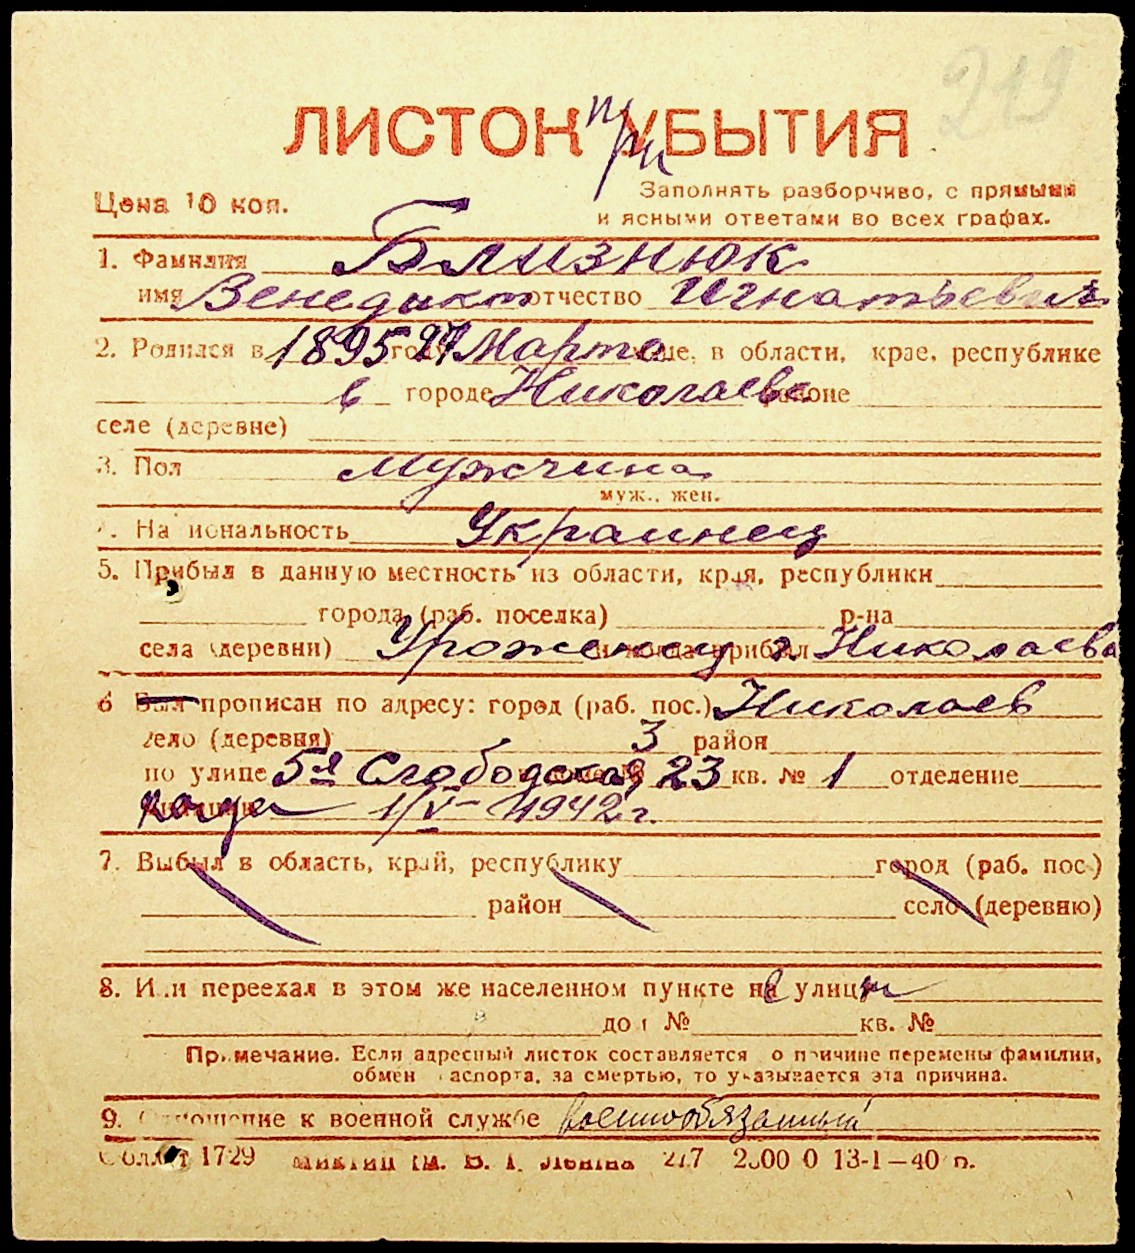 219
ЛИСТОК УБЫТИЯ
при
Цена 10 коп.
Заполнять разборчиво, с прямыми
и ясными ответами во всех графах.
1. Фамилия Близнюк
имя Венедикт отчество Игнатьевич
2. Родился в 1895 году 27 Марта в области, крае, республике
в городе Николаеве районе
селе (деревне)
3. Пол Мужчина
муж., жен.
4. Национальность Украинец
5. Прибыл в данную местность из области, края, республики
города (раб. поселка) р-на
села (деревни) Уроженец г. Николаева
6 Был прописан по адресу: город (раб. пос.) Николаев
село (деревня) 3 район
по улице 5я Слободская 23 кв. № 1 отделение
когда 1/V-1942 г.
7. Выбыл в область, край, республику город (раб. пос.)
район село (деревню)
8. Или переехал в этом же населенном пункте на улицу
дом № кв. №
Примечание. Если адресный листок составляется по причине перемены фамилии,
обмен паспорта, за смертью, то указывается эта причина.
9. Отношение к военной службе военнообязанный
1729 Ленина 227 13-1—40 г.